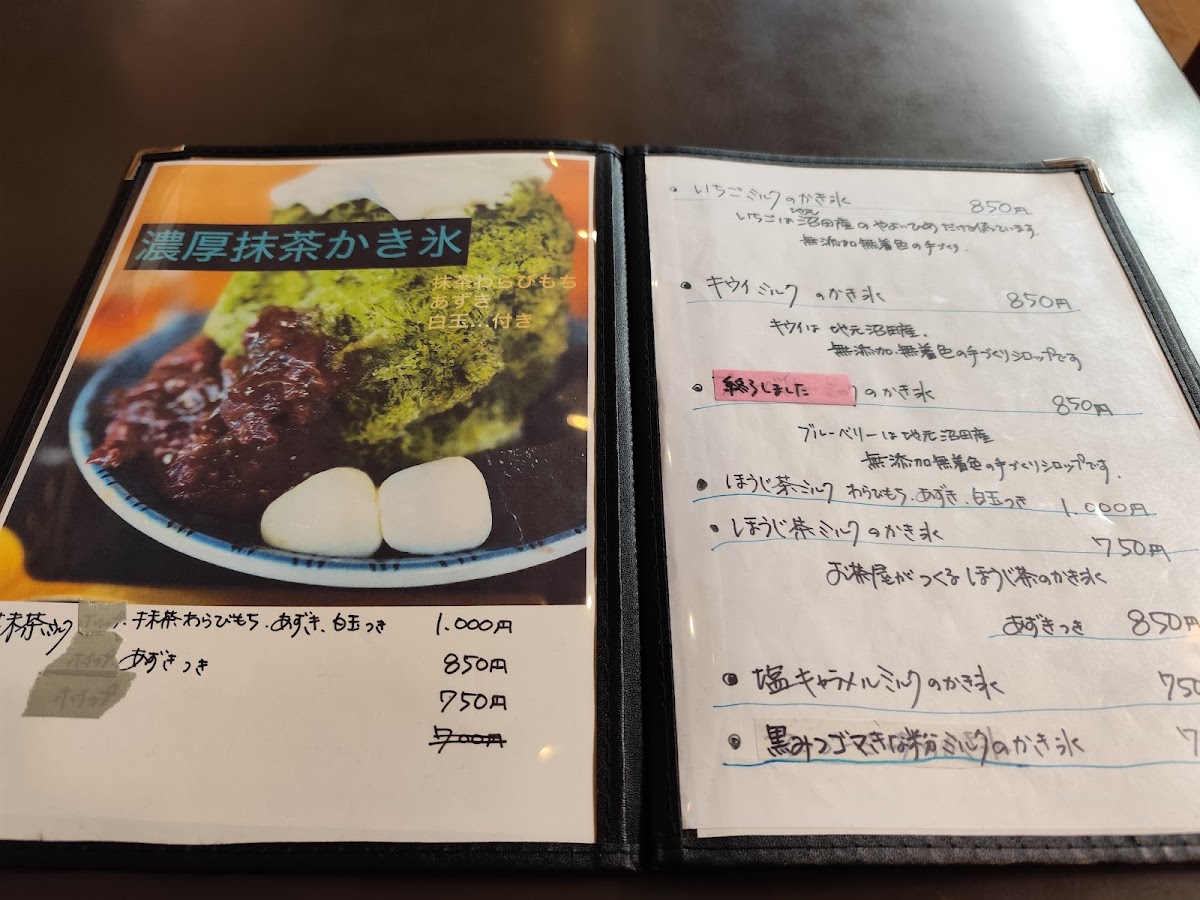 濃厚抹茶かき氷
抹茶わらびもち
あずき
白玉…付き
抹茶ミルク ホイップ、抹茶わらびもち、あずき、白玉つき 1.000円
ホイップ あずきつき 850円
ホイップ 750円
700円
・いちごミルクのかき氷 850円
いちごは地元沼田産のやよいひめだけ使っています。
無添加無着色の手づくり。
・キウイミルクのかき氷 850円
キウイは地元沼田産。
無添加、無着色の手づくりシロップです
・終了しました のかき氷 850円
ブルーベリーは地元沼田産
無添加無着色の手づくりシロップです。
・ほうじ茶ミルク わらびもち、あずき、白玉つき 1.000円
・ほうじ茶ミルクのかき氷 750円
お茶屋がつくるほうじ茶のかき氷
あずきつき 850円
・塩キャラメルミルクのかき氷 750
・黒みつゴマきな粉ミルクのかき氷 7